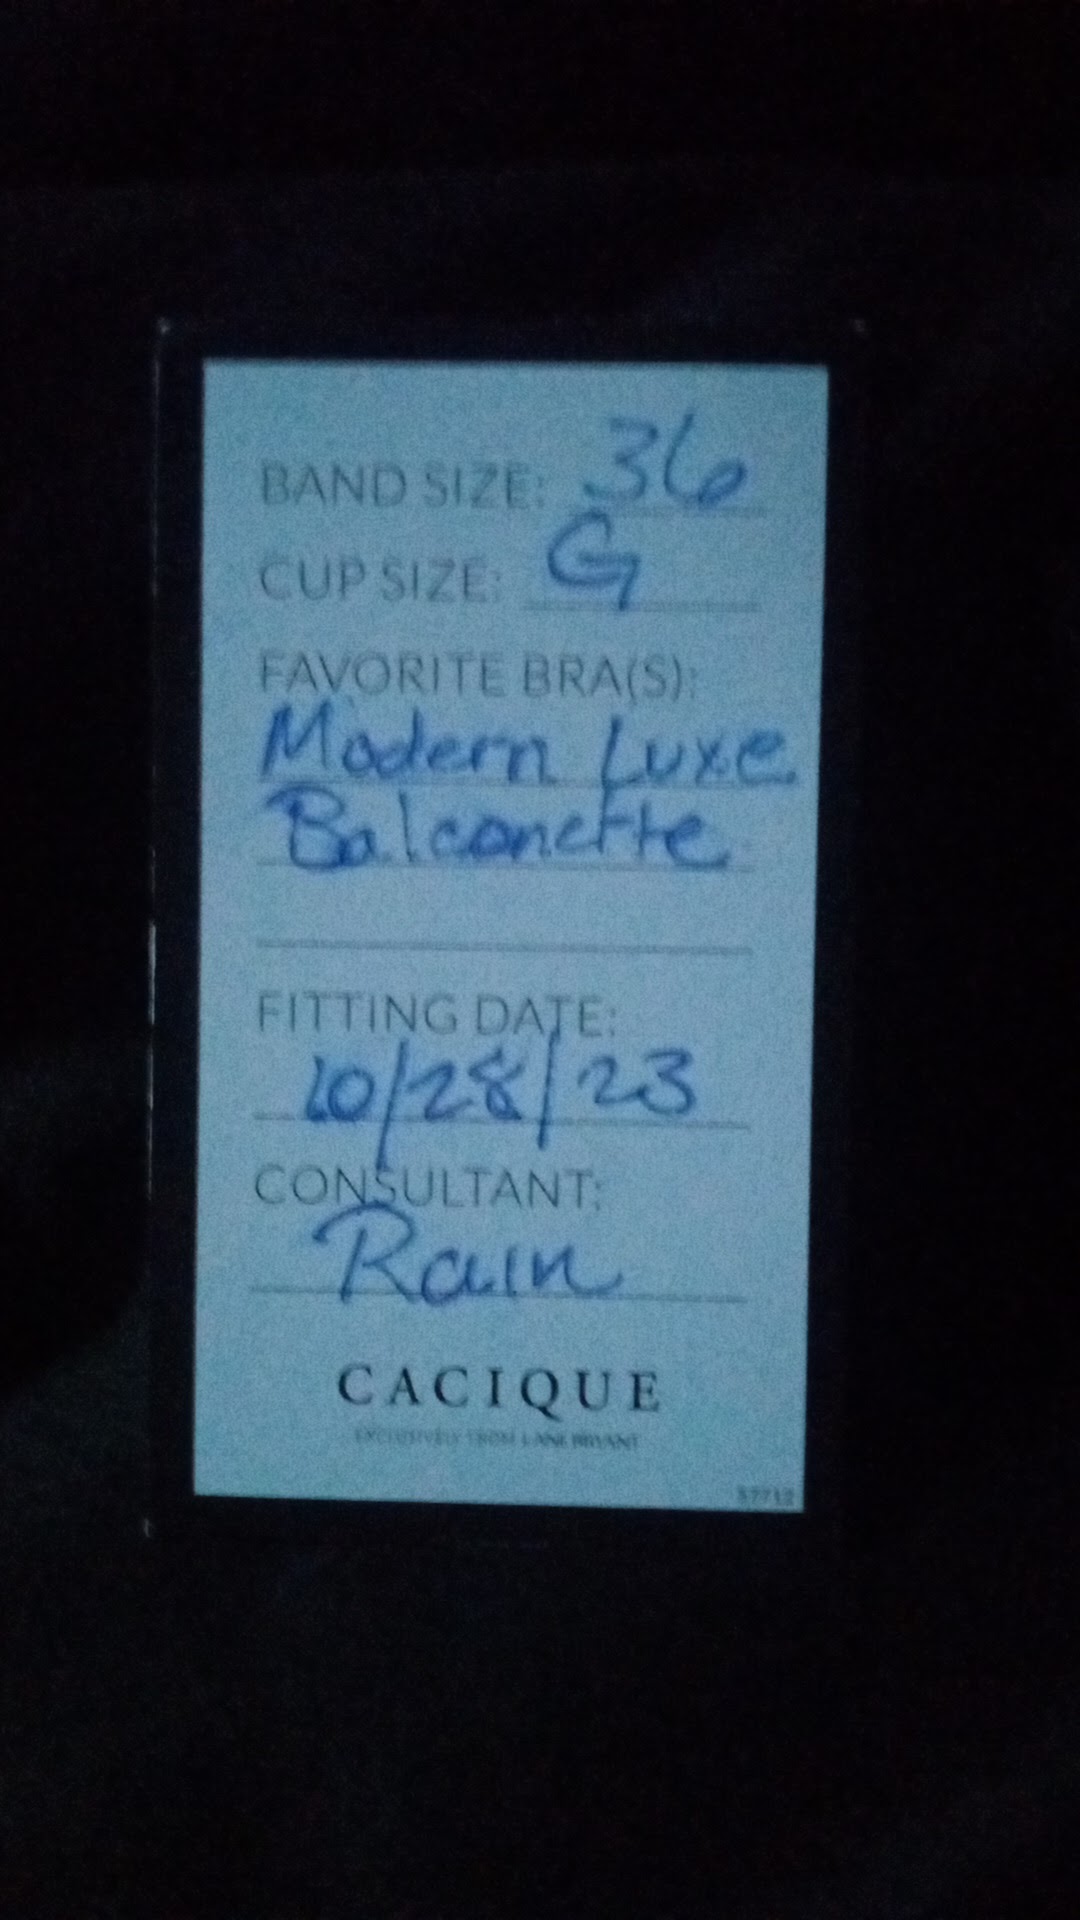 BAND SIZE: 36
CUP SIZE: G
FAVORITE BRA(S):
Modern Luxe
Balconette
FITTING DATE:
10/28/23
CONSULTANT:
Rain
CACIQUE
EXCLUSIVELY FROM LANE BRYANT